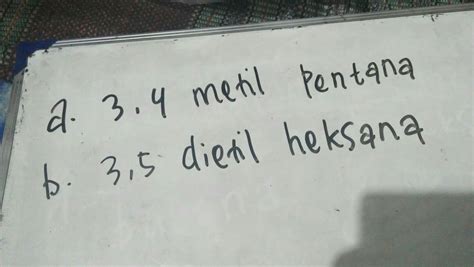 a. 3.4 metil pentana
b. 3,5 dietil heksana